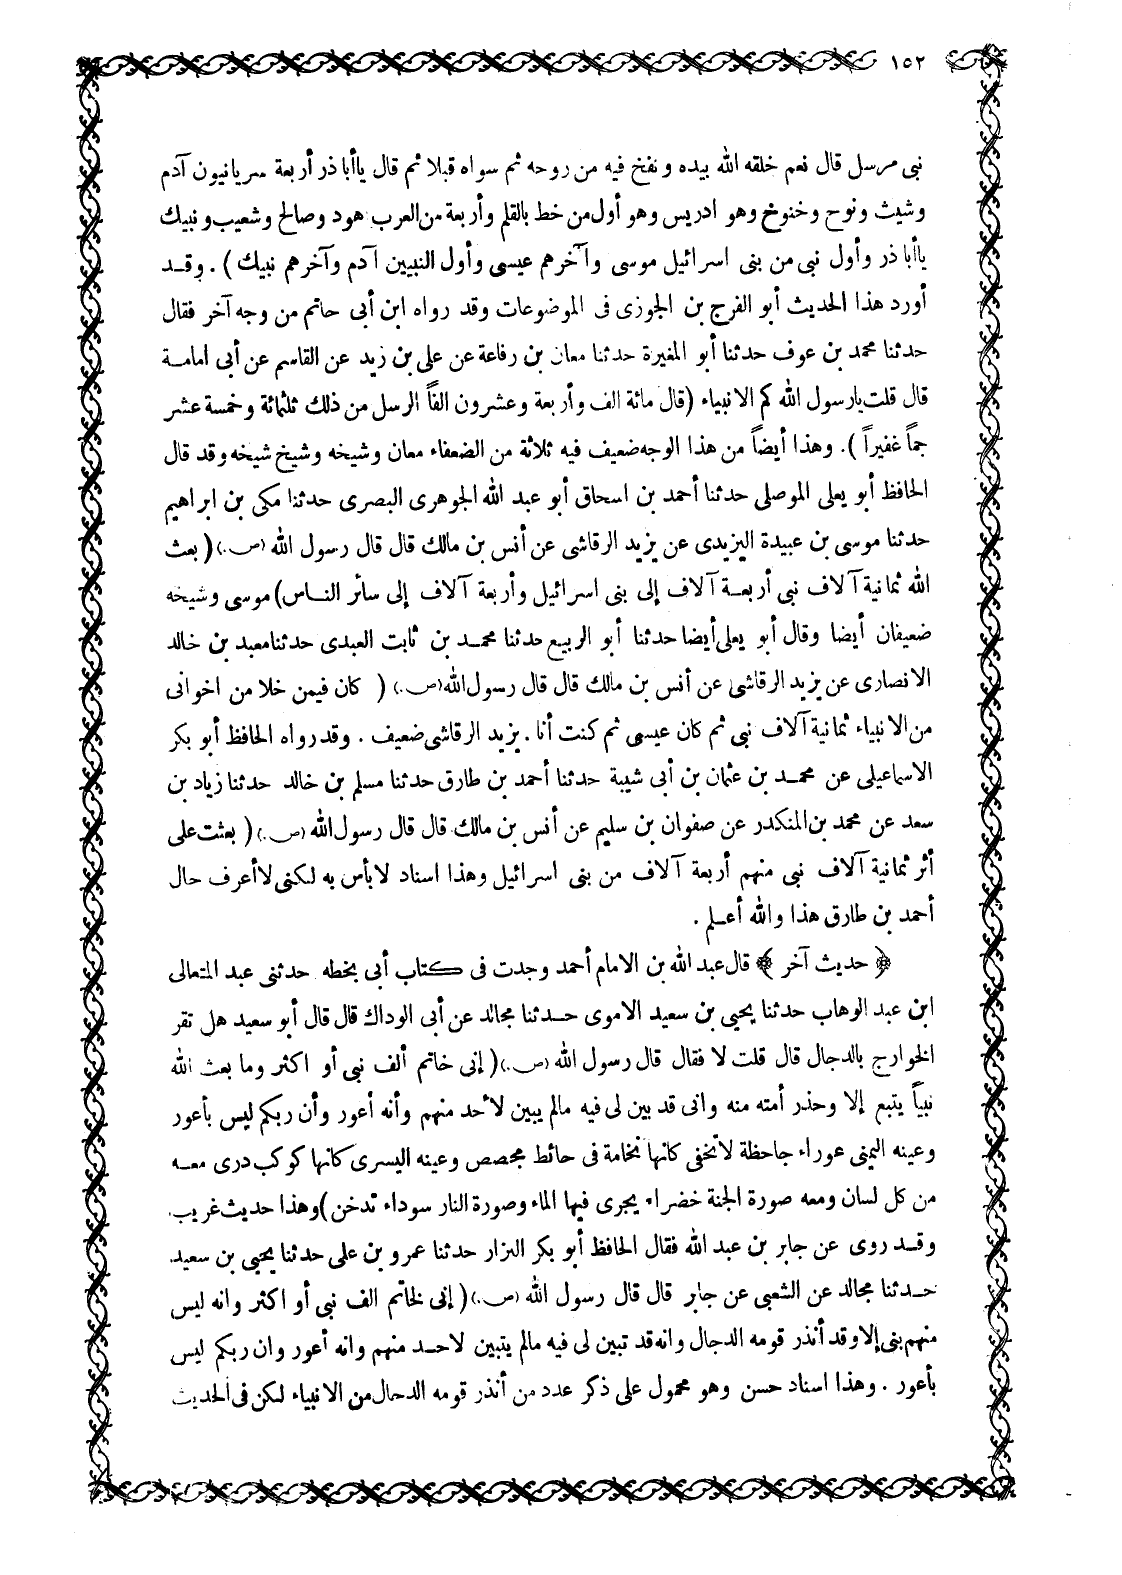 ١٥٢
نبى مرسل قال نعم خلقه الله بيده و نفخ فيه من روحه ثم سواه قبلا ثم قال ياأبا ذر أربعة سريانيون آدم
وشيث ونوح وخنوخ وهو ادريس وهو أول من خط بالقلم وأربعة من العرب هود وصالح وشعيب ونبيك
ياأبا ذر وأول نبى من بنى اسرائيل موسى وآخرهم عيسى وأول النبيين آدم وآخرهم نبيك ) . وقـد
أورد هذا الحديث أبو الفرج بن الجوزى فى الموضوعات وقد رواه ابن أبى حاتم من وجه آخر فقال
حدثنا محمد بن عوف حدثنا أبو المغيرة حدثنا معان بن رفاعة عن على بن زيد عن القاسم عن أبى امامـة
قال قلت يارسول الله كم الانبياء (قال مائة الف وأربعة وعشرون الفاً الرسل من ذلك ثلثمائة وخمسة عشر
جماً غفيراً ). وهذا أيضاً من هذا الوجه ضعيف فيه ثلاثة من الضعفاء معان وشيخه وشيخ شيخه وقد قال
الحافظ أبو يعلى الموصلى حدثنا أحمد بن اسحاق أبو عبد الله الجوهرى البصرى حدثنا مكى بن ابراهيم
حدثنا موسى بن عبيدة اليزيدى عن يزيد الرقاشى عن أنس بن مالك قال قال رسول الله (ص.) ( بعث
الله ثمانية آلاف نبى أربعـة آلاف إلى بنى اسرائيل وأربعة آلاف إلى سائر النـاس) موسى وشيخه
ضعيفان أيضا وقال أبو يعلى أيضا حدثنا أبو الربيع حدثنا محمـد بن ثابت العبدى حدثنا معبد بن خالد
الانصارى عن يزيد الرقاشى عن أنس بن مالك قال قال رسول الله (ص.) ( كان فيمن خلا من اخوانى
من الانبياء ثمانية آلاف نبى ثم كان عيسى ثم كنت أنا . يزيد الرقاشى ضعيف . وقد رواه الحافظ أبو بكر
الاسماعيلى عن محمـد بن عثمان بن أبى شيبة حدثنا أحمد بن طارق حدثنا مسلم بن خالد حدثنا زياد بن
سعد عن محمد بن المنكدر عن صفوان بن سليم عن أنس بن مالك قال قال رسول الله (ص.) ( بعثت على
أثر ثمانية آلاف نبى منهم أربعة آلاف من بنى اسرائيل وهذا اسناد لا بأس به لكنى لا أعرف حال
أحمد بن طارق هذا والله أعـلم .
﴿ حديث آخر ﴾ قال عبد الله بن الامام أحمد وجدت فى كتاب أبى بخطه حدثنى عبد المتعالى
ابن عبد الوهاب حدثنا يحيى بن سعيد الاموى حـدثنا مجالد عن أبى الوداك قال قال أبو سعيد هل تقر
الخوارج بالدجال قال قلت لا فقال قال رسول الله (ص.) ( إنى خاتم ألف نبى أو اكثر وما بعث الله
نبياً يتبع إلا وحذر أمته منه وانى قد بين لى فيه مالم يبين لأحد منهم وأنه أعور وأن ربكم ليس بأعور
وعينه اليمنى عوراء جاحظة لا تخفى كانها نخامة فى حائط مجصص وعينه اليسرى كانها كوكب درى معـه
من كل لسان ومعه صورة الجنة خضراء يجرى فيها الماء وصورة النار سوداء تدخن ) وهذا حديث غريب.
وقـد روى عن جابر بن عبد الله فقال الحافظ أبو بكر البزار حدثنا عمرو بن على حدثنا يحيى بن سعيد
حـدثنا مجالد عن الشعبى عن جابر قال قال رسول الله (ص.) ( إنى لخاتم الف نبى أو اكثر وانه ليس
منهم بنى إلا وقد أنذر قومه الدجال وانه قد تبين لى فيه مالم يتبين لاحـد منهم وانه أعور وان ربكم ليس
بأعور . وهذا اسناد حسن وهو محمول على ذكر عدد من أنذر قومه الدجال من الانبياء لكن فى الحديث